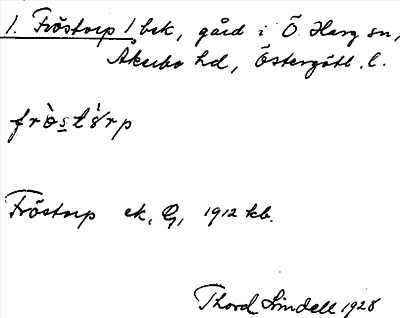 1. Fröstorp 1 bek, gård i Ö. Harg sn,
Åkerbo hd, Östergötl. l.
frö̀stə̀rp
Fröstorp ek, G, 1912 kb.
Thord Lindell 1928